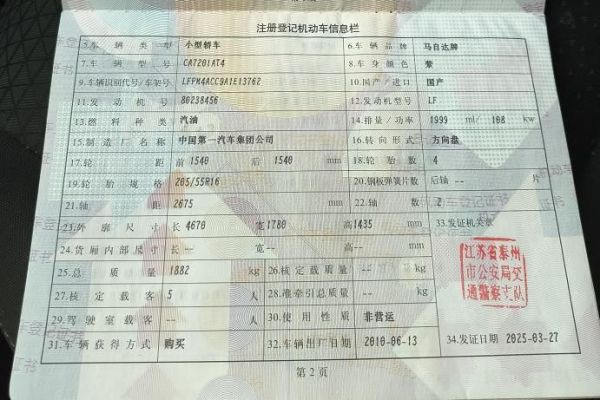 注册登记机动车信息栏
5.车辆类型 小型轿车 6.车辆品牌 马自达牌
7.车辆型号 CA7201AT4 8.车身颜色 紫
9.车辆识别代号/车架号 LFPM4ACC9A1E13762 10.国产/进口 国产
11.发动机号 80238456 12.发动机型号 LF
13.燃料种类 汽油 14.排量/功率 1999 ml/ 108 kw
15.制造厂名称 中国第一汽车集团公司 16.转向形式 方向盘
17.轮距 前 1540 后 1540 mm 18.轮胎数 4
19.轮胎规格 205/55R16 20.钢板弹簧片数 后轴 -- 片
21.轴距 2675 mm 22.轴数 2
23.外廓尺寸 长 4670 宽 1780 高 1435 mm 33.发证机关章
24.货厢内部尺寸 长 -- 宽 -- 高 -- mm
25.总质量 1882 kg 26.核定载质量 -- kg
27.核定载客 5 人 28.准牵引总质量 -- kg
29.驾驶室载客 -- 人 30.使用性质 非营运
31.车辆获得方式 购买 32.车辆出厂日期 2010-06-13 34.发证日期 2025-03-27
江苏省泰州
市公安局交
通警察支队
第2页